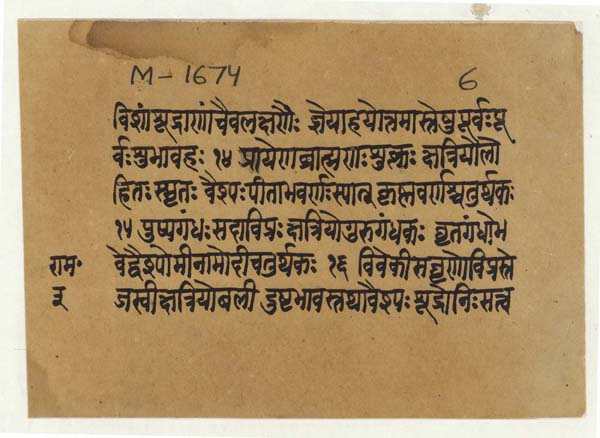 M-1674
6
विशां शूद्राणां चैव लक्षणैः ज्ञेया हयोत्तमास्तेषु पूर्वः पू
र्वः शुभावहः १४ प्रायेण ब्राह्मणः शुक्लः क्षत्रियो लो
हितः स्मृतः वैश्यः पीताभवर्णः स्यात् कृष्णवर्णश्चतुर्थकः
१५ पुष्पगंधः सदा विप्रः क्षत्रियोगुरुगंधकः घृतगंधो भ
राम॰ वेद्वैश्यो मीनामोदी चतुर्थकः १६ विवेकी सघृणो विप्रस्ते
३ जस्वी क्षत्रियो बली दुष्टभावस्तथा वैश्यः शूद्रो निःसत्व